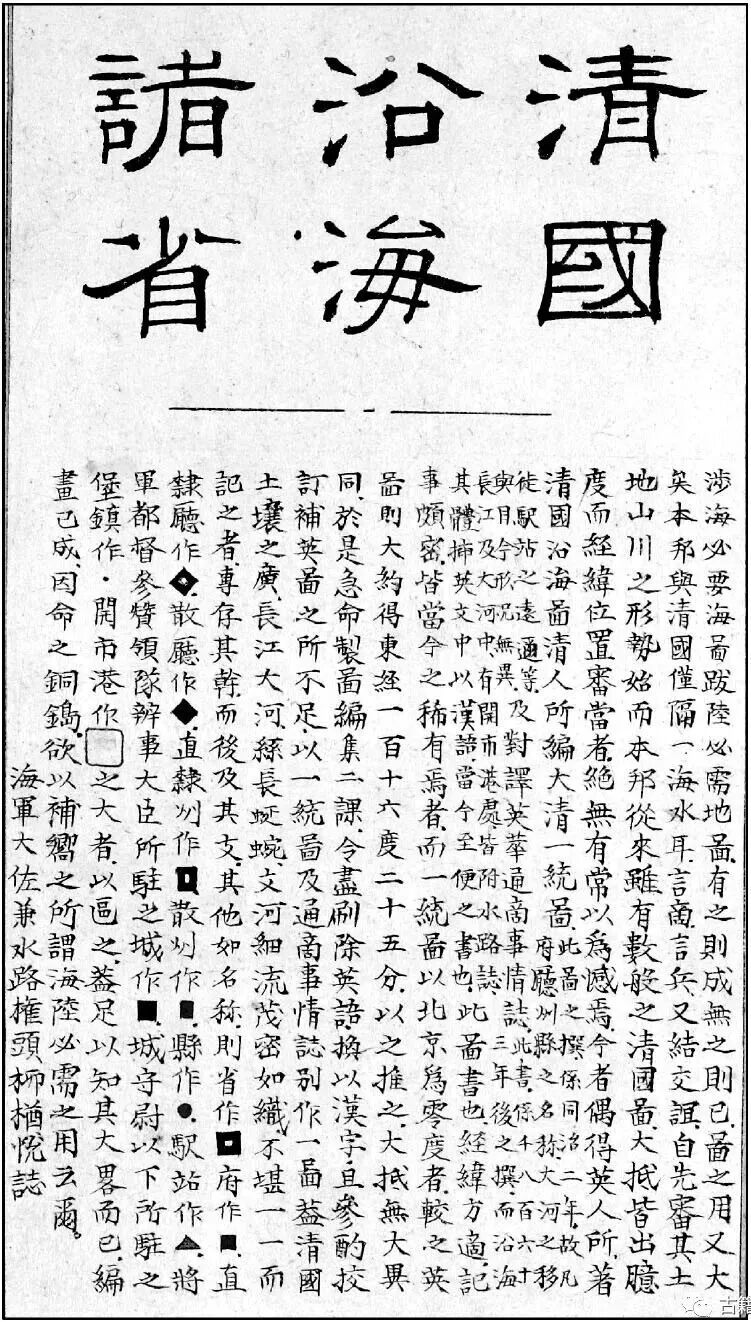 清國
沿海
諸省
涉海必要海啚跋陸必需地啚有之則成無之則已啚之用又大
矣本邦與清國僅隔一海水耳言商言兵又結交誼自先審其土
地山川之形勢始而本邦從來雖有數般之清國啚大抵皆出臆
度而經緯位置審當者絕無有常以爲憾焉今者偶得英人所著
清國沿海啚清人所編大清一統啚此圖之撰係同治二年故凡
府廳州縣之名称大河之移
徙駅站之遠邇等
與目今形况無異及對譯英華通商事情誌此書係千八百六十
三年後之撰而沿海
長江及大河中有開市港處皆附水路誌
其體揷英文中以漢語當今至便之書也此圖書也經緯方適記
事頗密皆當今之稀有焉者而一統圖以北京爲零度者較之英
啚則大約得東经一百十六度二十五分以之推之大抵無大異
同於是急命製啚編集二課令盡刷除英語換以漢字且參酌挍
訂補英啚之所不足以一統啚及通商事情誌別作一啚葢清國
土壤之廣長江大河綿長蜓蜿文河細流茂密如織不堪一一而
記之者專存其幹而後及其支其他如名称則省作府作直
隸廳作散廳作直隸州作散州作縣作●駅站作▲將
軍都督參贊領隊辨事大臣所駐之城作■城守尉以下所駐之
堡鎮作・開市港作□之大者以區之葢足以知其大畧而已編
畫已成因命之銅鐫欲以補嚮之所謂海陸必需之用云爾
海軍大佐兼水路權頭柳楢悅誌
古籍